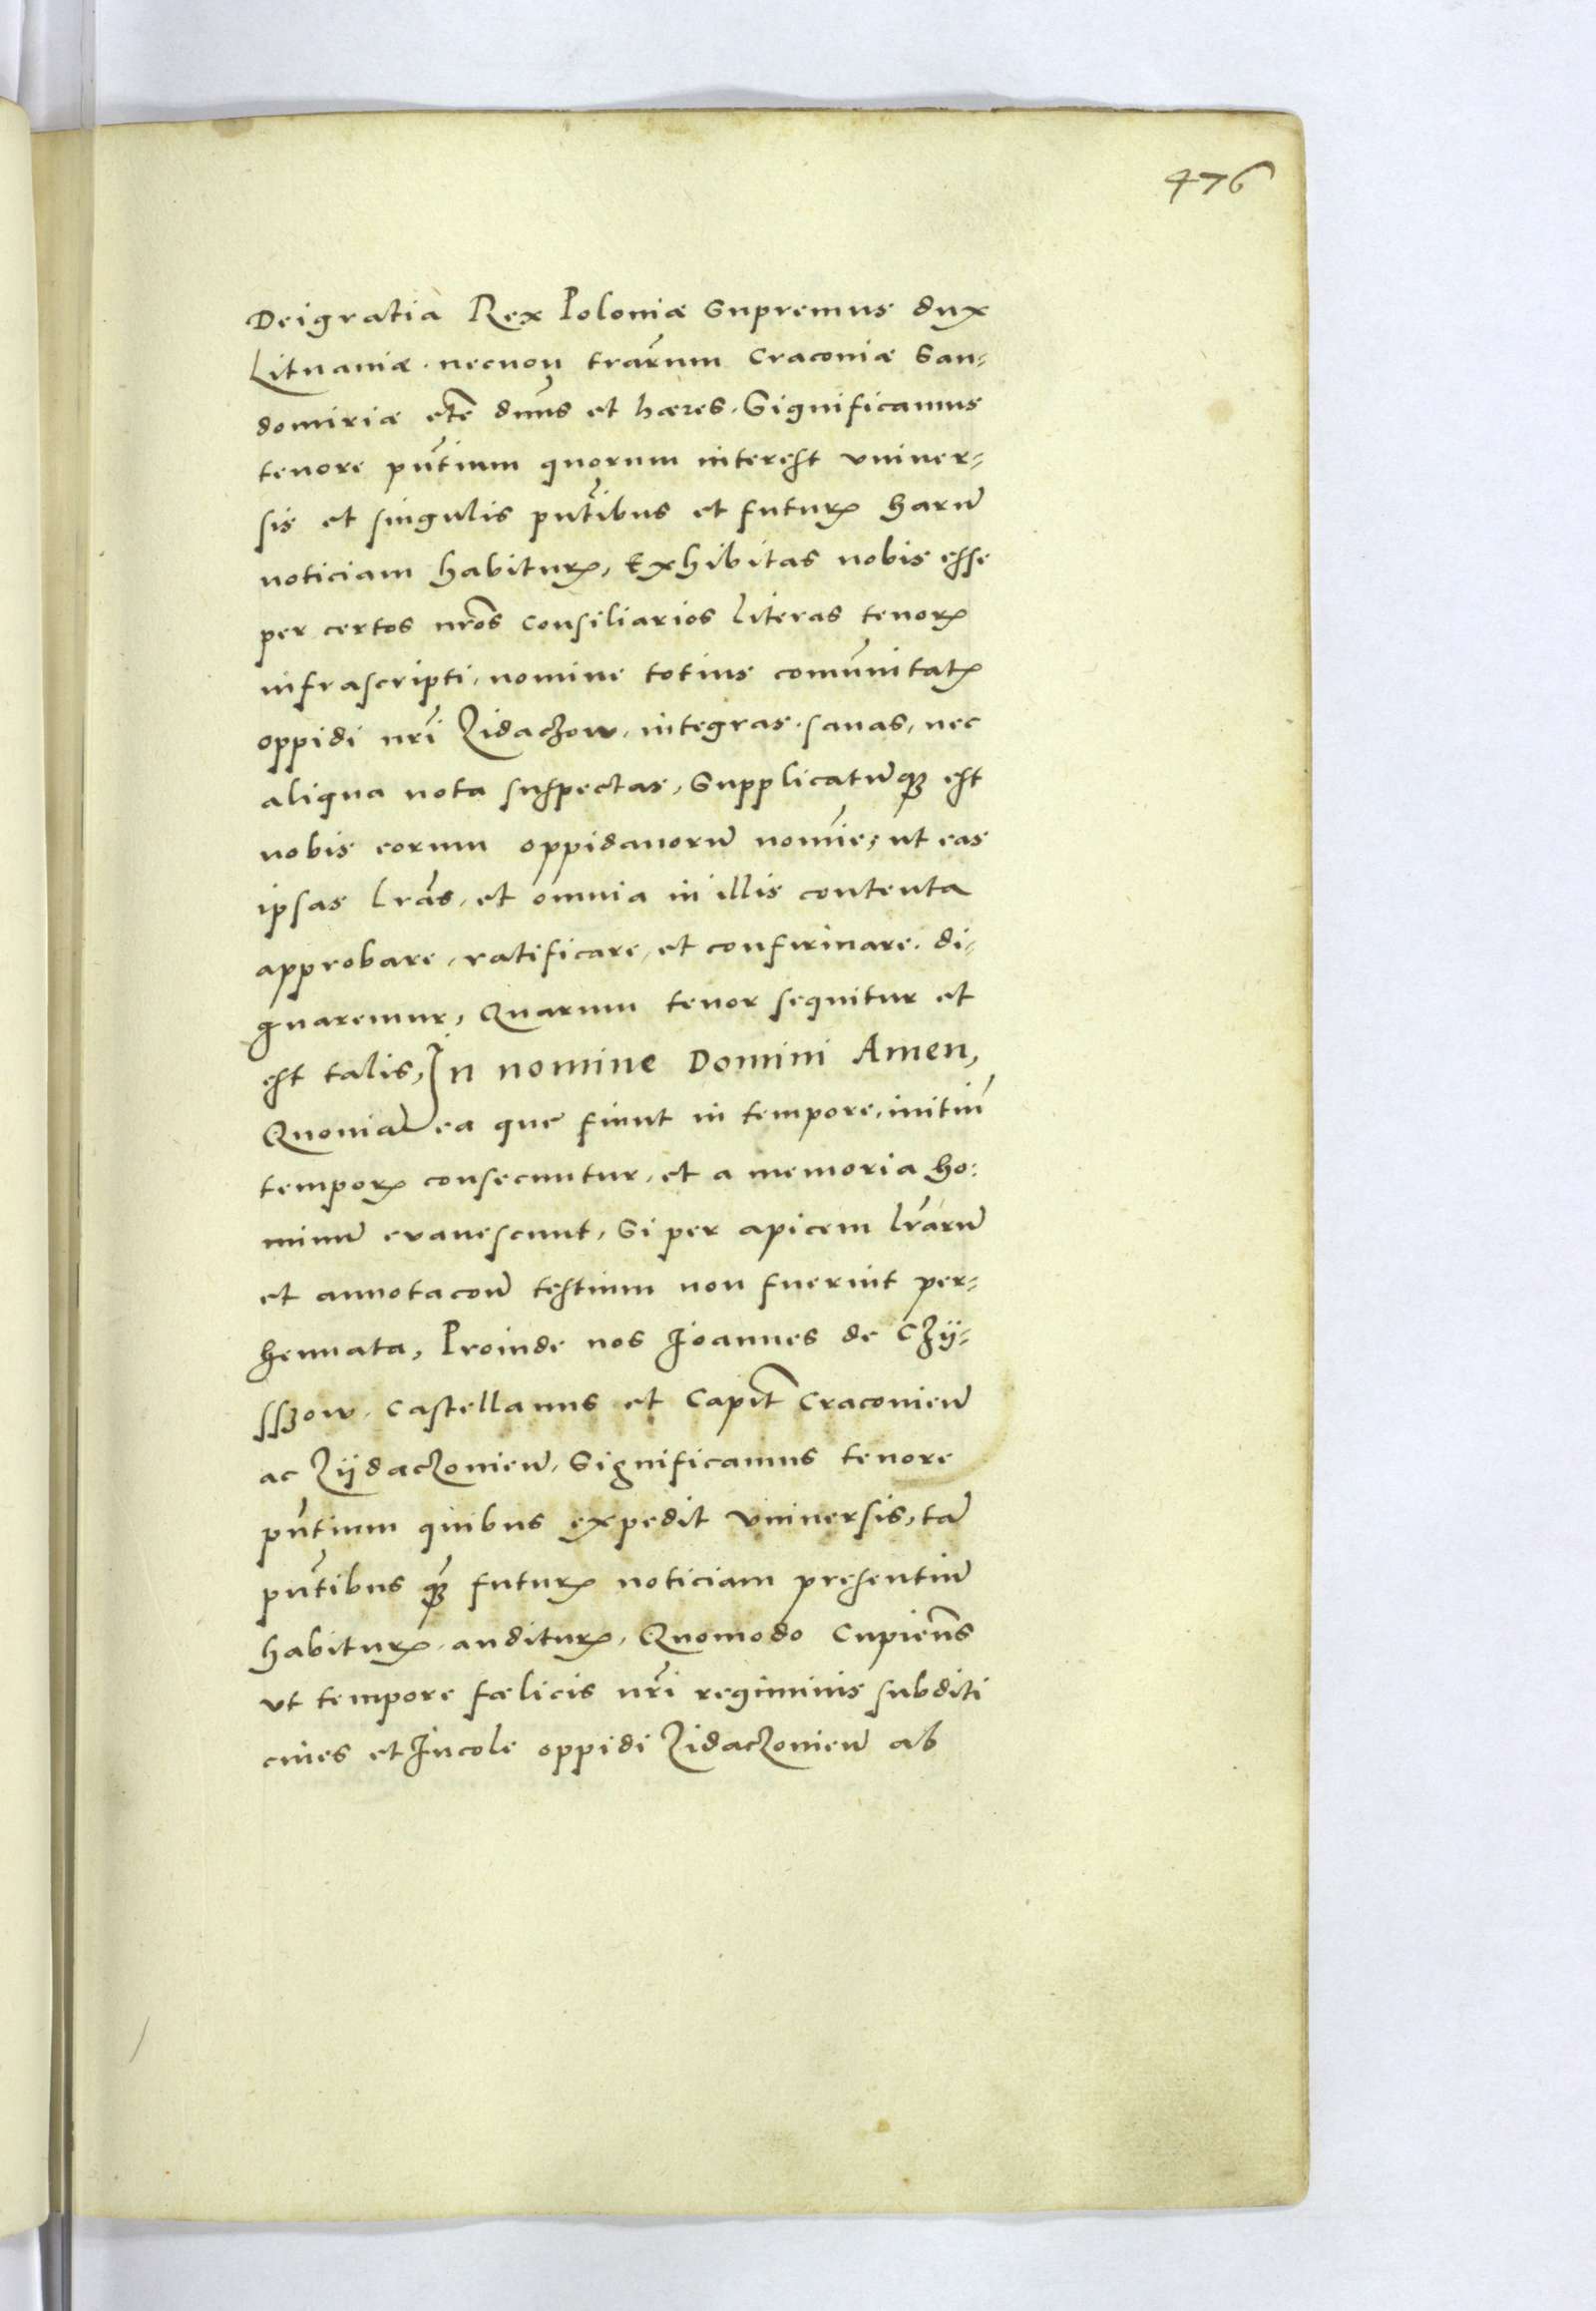 476
Dei gratia Rex Poloniæ Supremus dux
Lituaniæ. necnon trarum̃ Craconiæ San-
domiriæ etc̃ dñus et hæres. Significamus
tenore pñtium quorum interest vniuer-
sis et singulis pñtibus et futurꝭ harũ
noticiam habiturꝭ, Exhibitas nobis esse
per certos nr̃os consiliarios literas tenorꝭ
infrascripti, nomine totius com̃unitatꝭ
oppidi nr̃i Zidaczow, integras. sanas, nec
aliqua nota suspectas, Supplicatũqꝫ est
nobis eorum oppidanorũ nomĩe, ut eas
ipsas lr̃as, et omnia in illis contenta
approbare, ratificare, et confirmare. di-
gnaremur, Quarum tenor sequitur et
est talis, In nomine Domini Amen,
Quoniã ea que fiunt in tempore, initiũ
temporꝭ consecuntur, et a memoria ho:
minũ evanescunt, Si per apicem lr̃arũ
et annotacoñ testium non fuerint per-
hennata, Proinde nos Joannes de Czÿ-
sszow, Castellanus et Capit̃ Craconieñ
ac Zÿdaczonieñ, Significamus tenore
pñtium quibus expedit vniuersis, tã
pñtibus qꝫ̃ futurꝭ noticiam presentiũ
habiturꝭ, auditurꝭ, Quomodo Cupieñs
vt tempore fælicis nr̃i regiminis subditi
ciues et Incole oppidi Zidaczonieñ ab